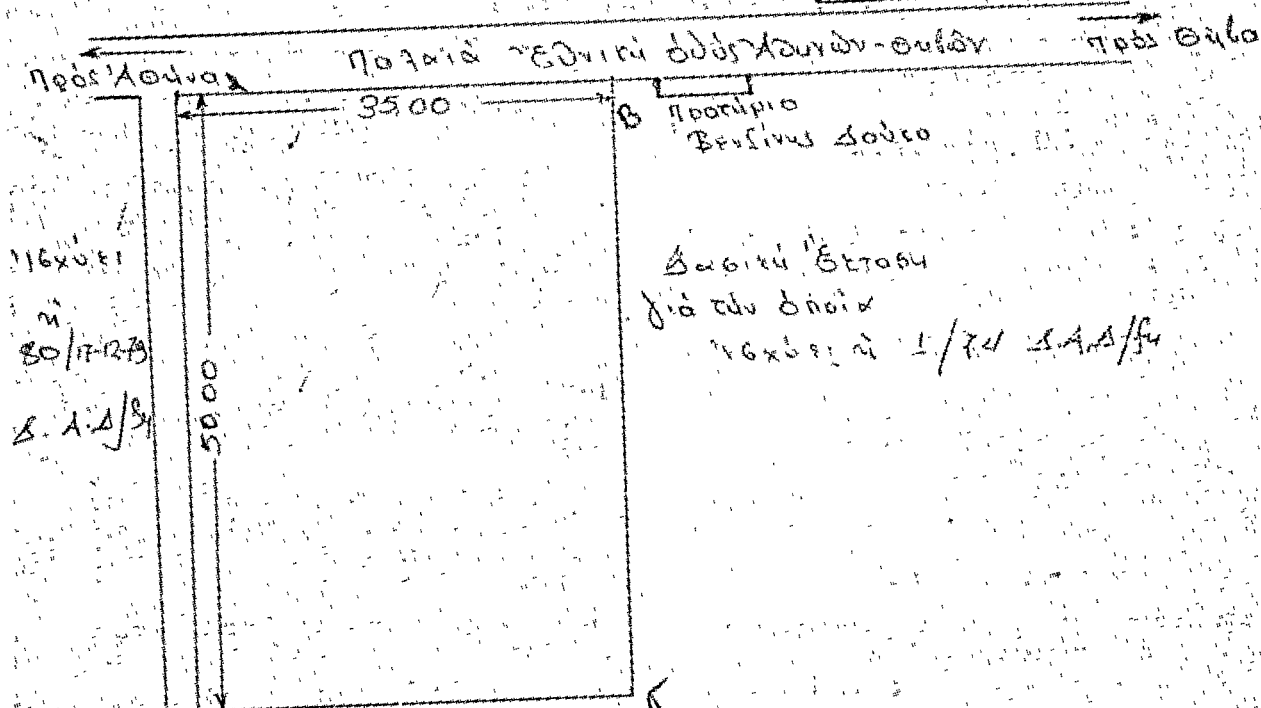 Πρός Ἀθήνα
Παλαιά Ἐθνική ὁδός Ἀθηνῶν-Θηβῶν
Πρός Θήβα
35.00
Β
Πρατήριο
Βενζίνης Δούκα
Ἰσχύει
ἡ
80/17-12-79
Δ.Α.Δ/ση
50.00
Δασική Ἔκταση
γιά τήν ὁποία
ἰσχύει ἡ 1/74 Δ.Α.Δ/ση
Γ